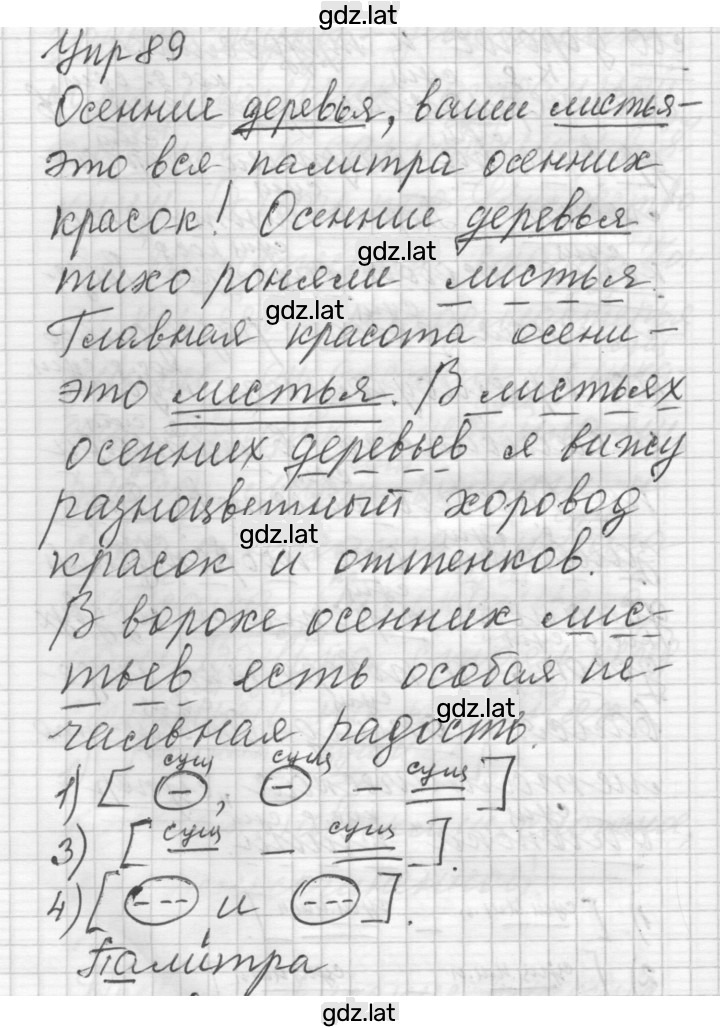 gdz.lat
Упр 89
Осенние деревья, ваши листья –
это вся палитра осенних
красок! Осенние деревья
gdz.lat
тихо роняли листья.
gdz.lat
Главная красота осени –
это листья. В листьях
осенних деревьев я вижу
разноцветный хоровод
gdz.lat
красок и оттенков.
В ворохе осенних лис-
тьев есть особая пе-
gdz.lat
чальная радость.
сущ сущ сущ
1) [ – , – – ]
3) [ сущ – сущ ].
4) [ --- и --- ].
Пали́тра
gdz.lat